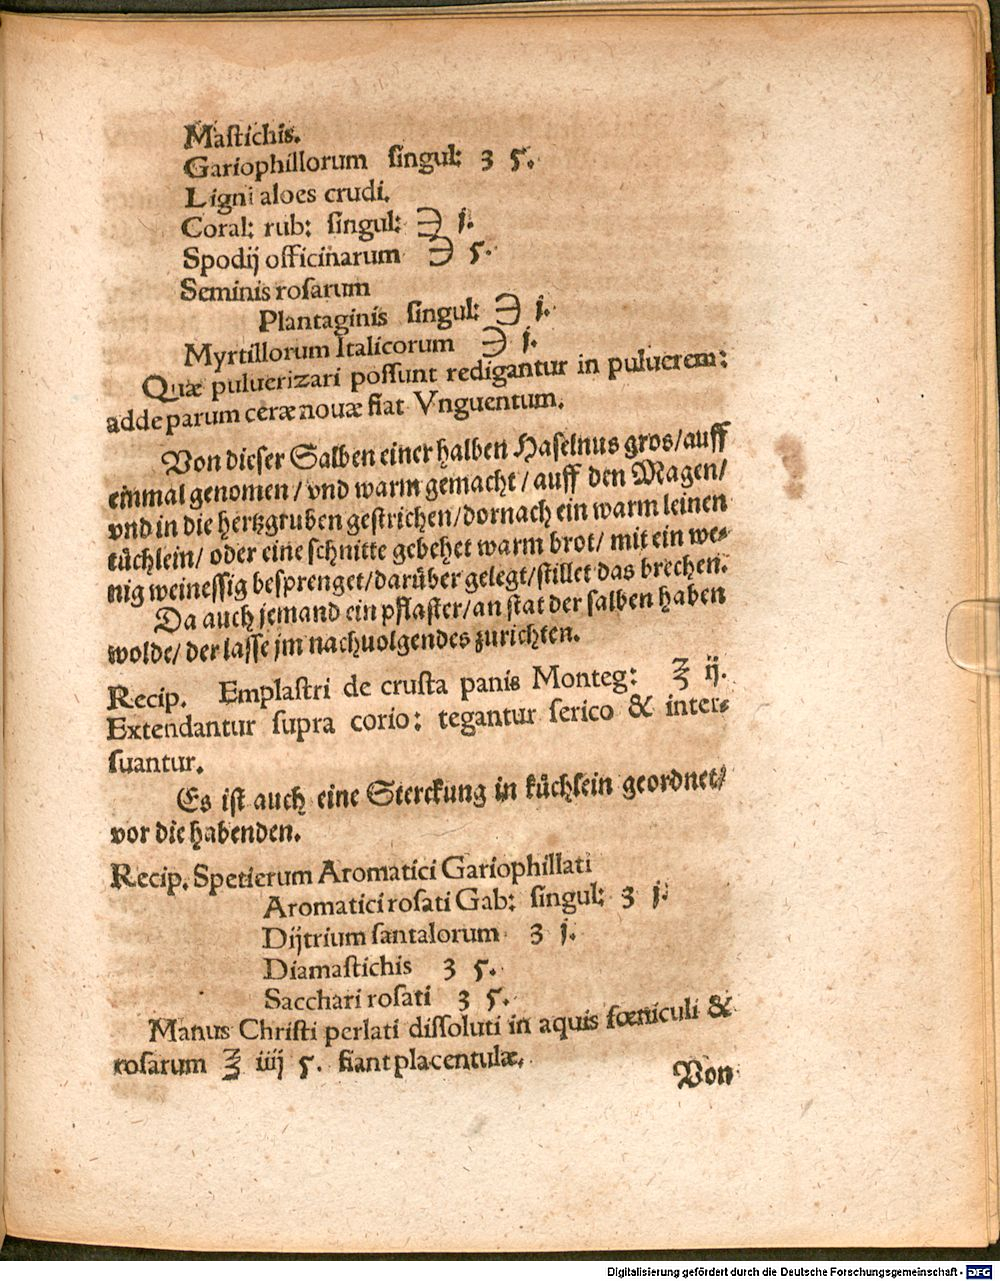 Maſtichis.
Gariophillorum ſingul: ʒ 5.
Ligni aloes crudi.
Coral: rub: ſingul: ℈ j.
Spodij officinarum ℈ 5.
Seminis roſarum
Plantaginis ſingul: ℈ j.
Myrtillorum Italicorum ℈ j.
Quæ puluerizari poſſunt redigantur in puluerem:
adde parum ceræ nouæ fiat Vnguentum.
Von dieſer Salben einer halben Haſelnus gros/auff
einmal genomen/vnd warm gemacht/auff den Magen/
vnd in die hertzgruben geſtrichen/dornach ein warm leinen
tüchlein/ oder eine ſchnitte gebehet warm brot/ mit ein we⸗
nig weineſſig beſprenget/darüber gelegt/ſtillet das brechen.
Da auch jemand ein pflaſter/an ſtat der ſalben haben
wolde/ der laſſe jm nachuolgendes zurichten.
Recip. Emplaſtri de cruſta panis Monteg: ℥ ij.
Extendantur ſupra corio: tegantur ſerico & inter⸗
ſuantur.
Es iſt auch eine Sterckung in küchlein geordnet/
vor die habenden.
Recip. Spetierum Aromatici Gariophillati
Aromatici roſati Gab: ſingul: ʒ j.
Dijtrium ſantalorum ʒ j.
Diamaſtichis ʒ 5.
Sacchari roſati ʒ 5.
Manus Chriſti perlati diſſoluti in aquis fœniculi &
roſarum ℥ iiij 5. fiant placentulæ.
Von
Digitalisierung gefördert durch die Deutsche Forschungsgemeinschaft - DFG